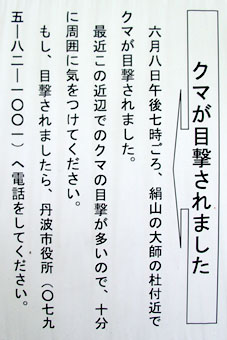 クマが目撃されました
六月八日午後七時ごろ、絹山の大師の杜付近で
クマが目撃されました。
最近この近辺でのクマの目撃が多いので、十分
に周囲に気をつけてください。
もし、目撃されましたら、丹波市役所（〇七九
五―八二―一〇〇一）へ電話をしてください。